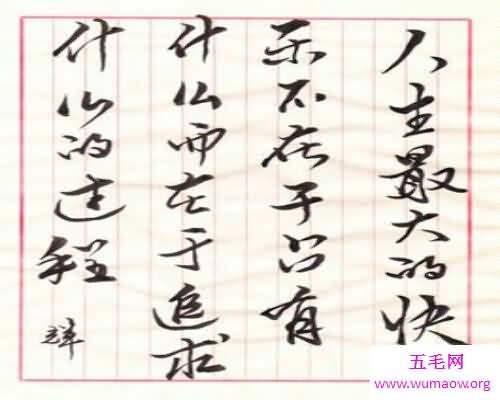 人生最大的快
乐不在于占有
什么而在于追求
什么的过程
五毛网
www.wumaow.org